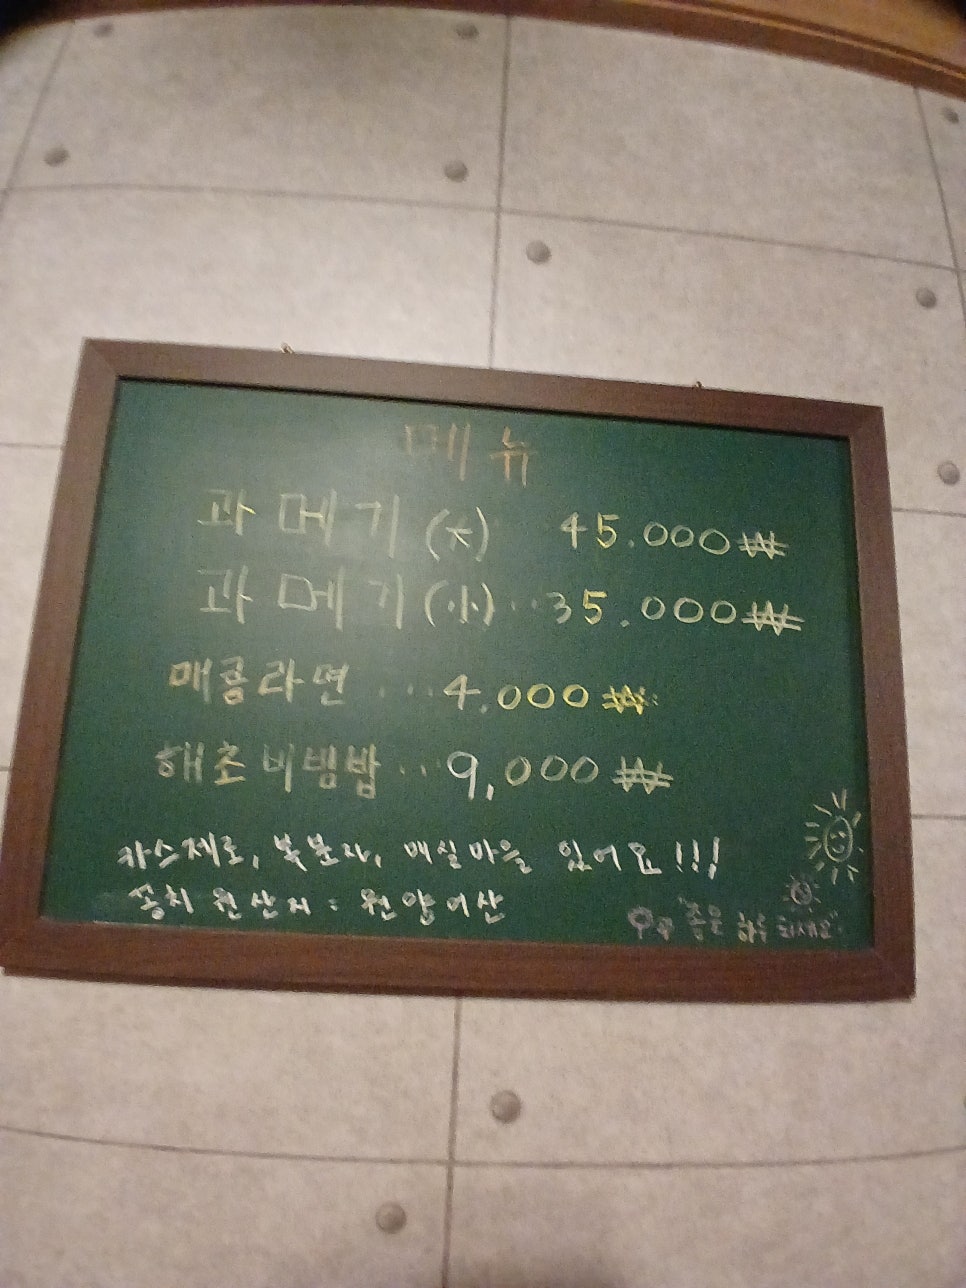 메뉴
과메기(大) 45.000₩
과메기(小)··35.000₩
매콤라면 ···4,000₩
해초비빔밥···9,000₩
카스제로, 복분자, 매실마을 있어요!!!
꽁치 원산지 : 원양어산
"좋은 하루 되세요"